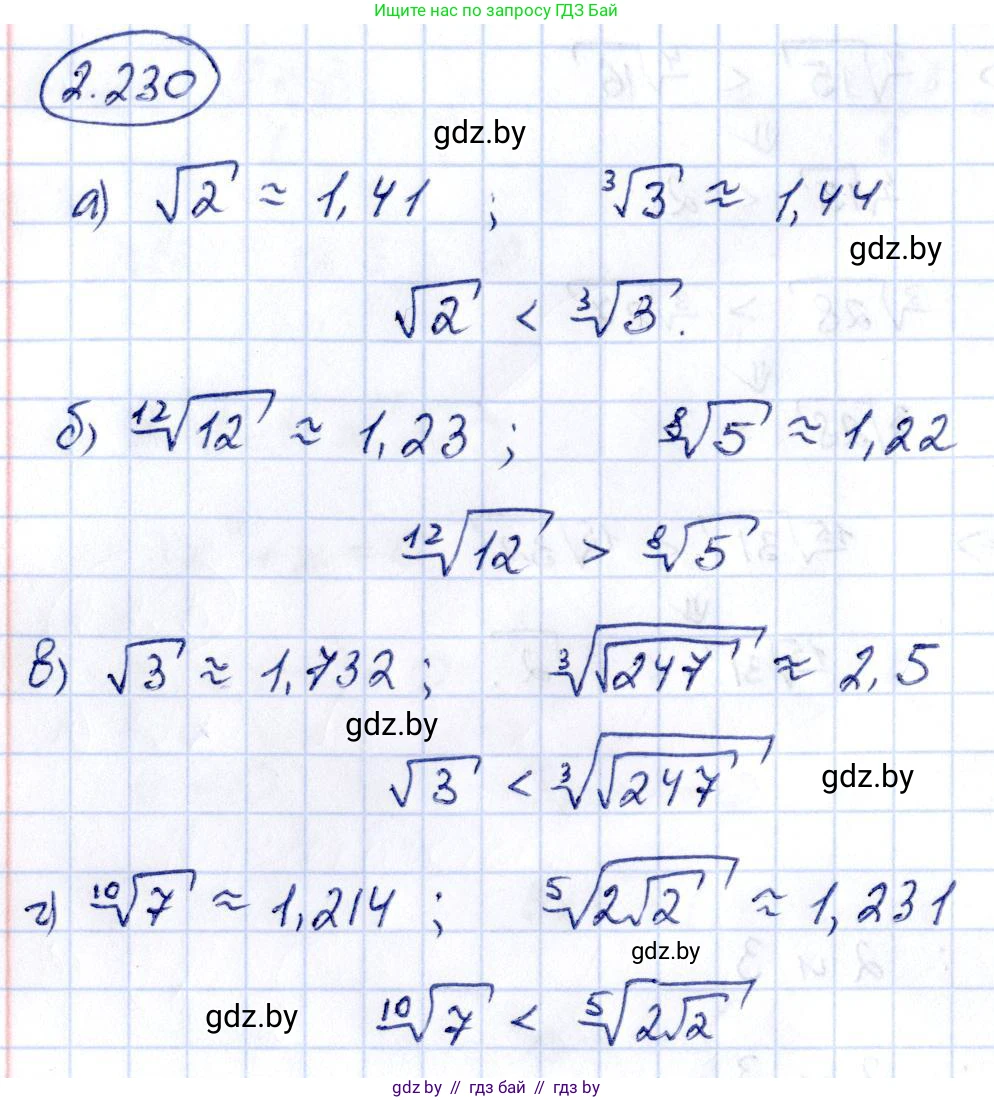 Ищите нас по запросу ГДЗ Бай
2.230
gdz.by
а) √2 ≈ 1,41 ; ∛3 ≈ 1,44
gdz.by
√2 < ∛3.
б) ¹²√12 ≈ 1,23 ; ⁸√5 ≈ 1,22
¹²√12 > ⁸√5
в) √3 ≈ 1,732 ; ∛(√247) ≈ 2,5
gdz.by
√3 < ∛(√247)
gdz.by
г) ¹⁰√7 ≈ 1,214 ; ⁵√(2√2) ≈ 1,231
gdz.by
¹⁰√7 < ⁵√(2√2)
gdz.by
gdz.by // гдз бай // гдз by